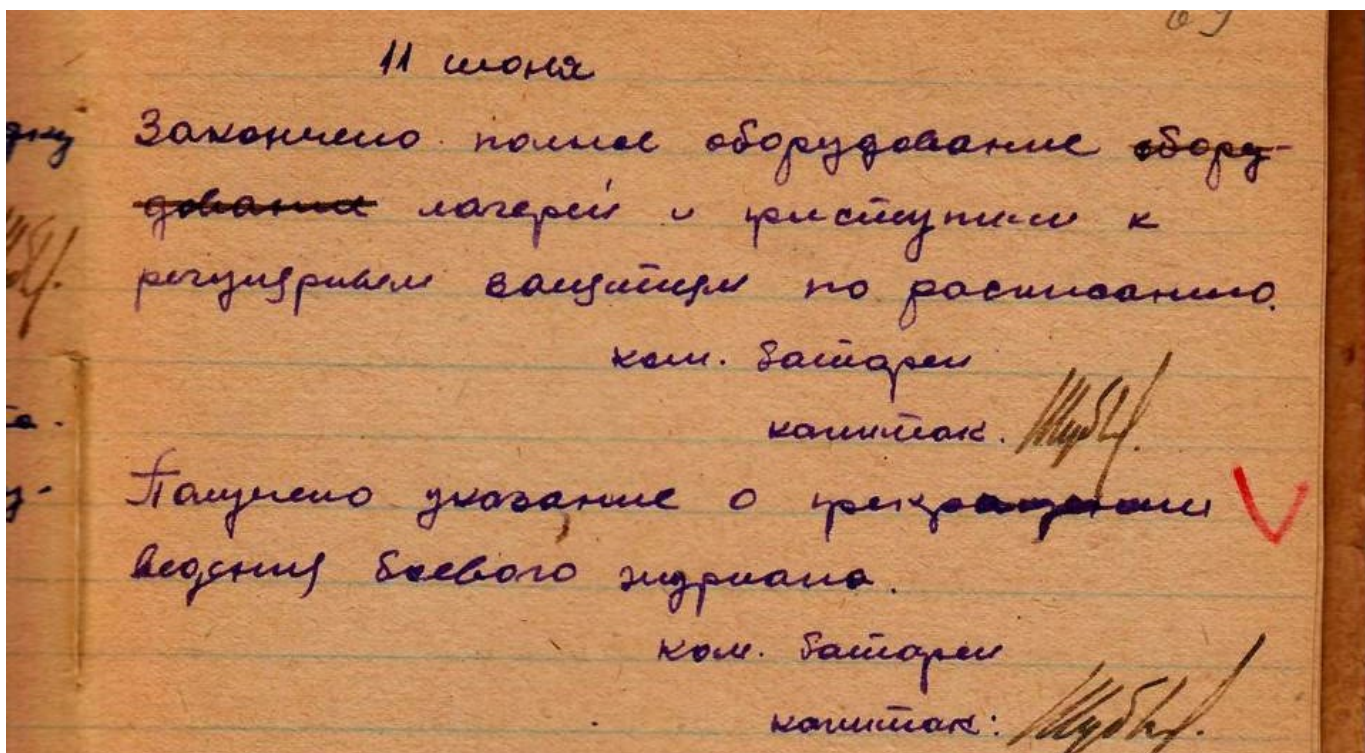 11 июня
Закончено полное оборудование обору-
дование лагерей и приступили к
регулярным занятиям по расписанию.
ком. батареи
капитан:
Получено указание о прекращении
ведения боевого журнала.
ком. батареи
капитан: